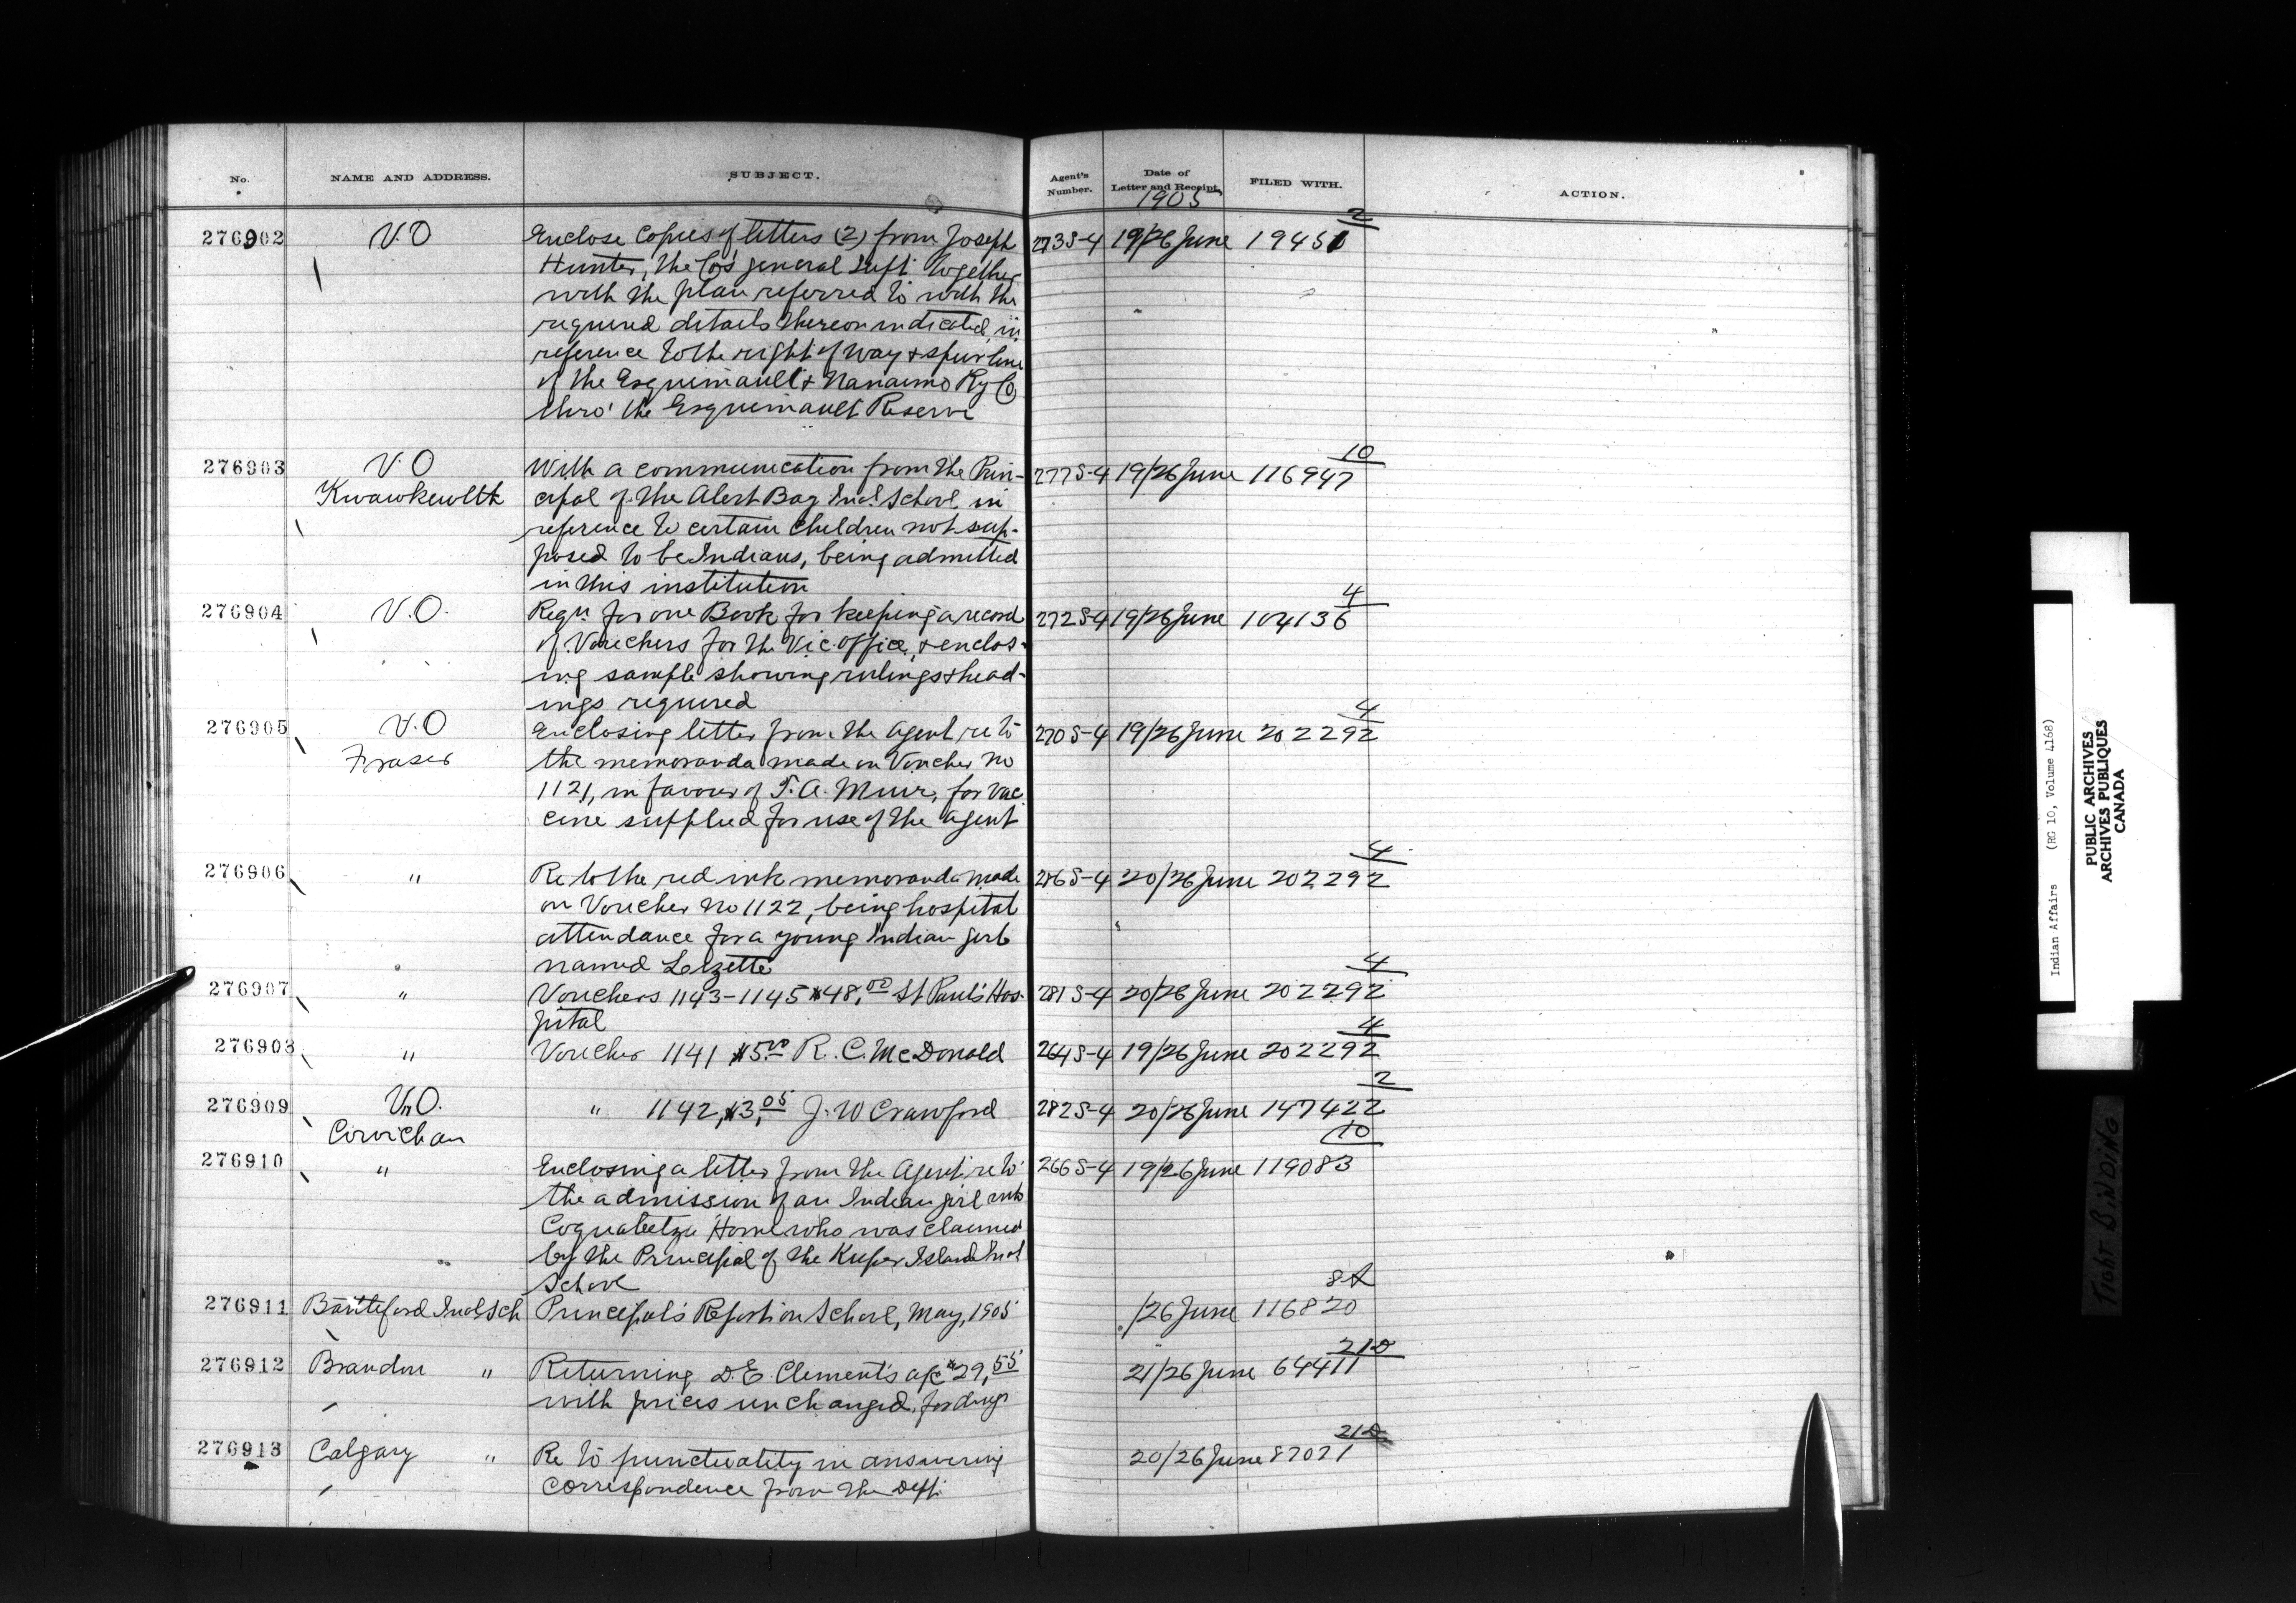 No. NAME AND ADDRESS. SUBJECT. Agent's Number. Date of Letter and Receipt. FILED WITH. ACTION.
1905
2
276902 V.O Enclose Copies of letters (2) from Joseph 273 S-4 19/26 June 19451
Hunter, the Co's general Supt. together
with the plan referred to with the
required details thereon indicated, in
reference to the right of way & spur line
of the Esquimault & Nanaimo Ry Co
thro' the Esquimault Reserve
10
276903 V.O With a communication from the Prin- 277 S-4 19/26 June 116947
Kwawkewlth cipal of the Alert Bay Ind. School, in
reference to certain children not sup-
posed to be Indians, being admitted
in this institution
4
276904 V.O. Reqn. for one Book for keeping a record 272 S-4 19/26 June 104136
of Vouchers for the Vic. Office, & enclos-
ing sample showing rulings & head-
ings required
4
276905 V.O Enclosing letter from the Agent re to 270 S-4 19/26 June 202292
Fraser the memoranda made on Voucher No
1121, in favour of T. A. Muir, for vac
cine supplied for use of the agent
4
276906 " Re to the red ink memoranda made 286 S-4 20/26 June 202292
on Voucher No 1122, being hospital
attendance for a young Indian girl
named
4
276907 " Vouchers 1143-1145 $48.00 St Paul's Hos- 281 S-4 20/26 June 202292
pital
4
276908 " Voucher 1141 $5.00 R. C. McDonald 264 S-4 19/26 June 202292
2
276909 V.O. " 1142, $3.05 J. W Crawford 282 S-4 20/26 June 147422
Cowichan
10
276910 " Enclosing a letter from the Agent re to 266 S-4 19/26 June 119083
the admission of an Indian girl into
Coqualeetza Home who was claimed
by the Principal of the Kuper Island Ind
School
276911 Battleford Indl Sch Principal's Report on School, May, 1905 /26 June 116820
212
276912 Brandon " Returning D. E. Clement's a/c $29.55 21/26 June 64411
with prices unchanged, for drugs
212
276913 Calgary " Re to punctuality in answering 20/26 June 87071
correspondence from the Dept.
Indian Affairs (RG 10, Volume 4168)
PUBLIC ARCHIVES
ARCHIVES PUBLIQUES
CANADA
TIGHT BINDING